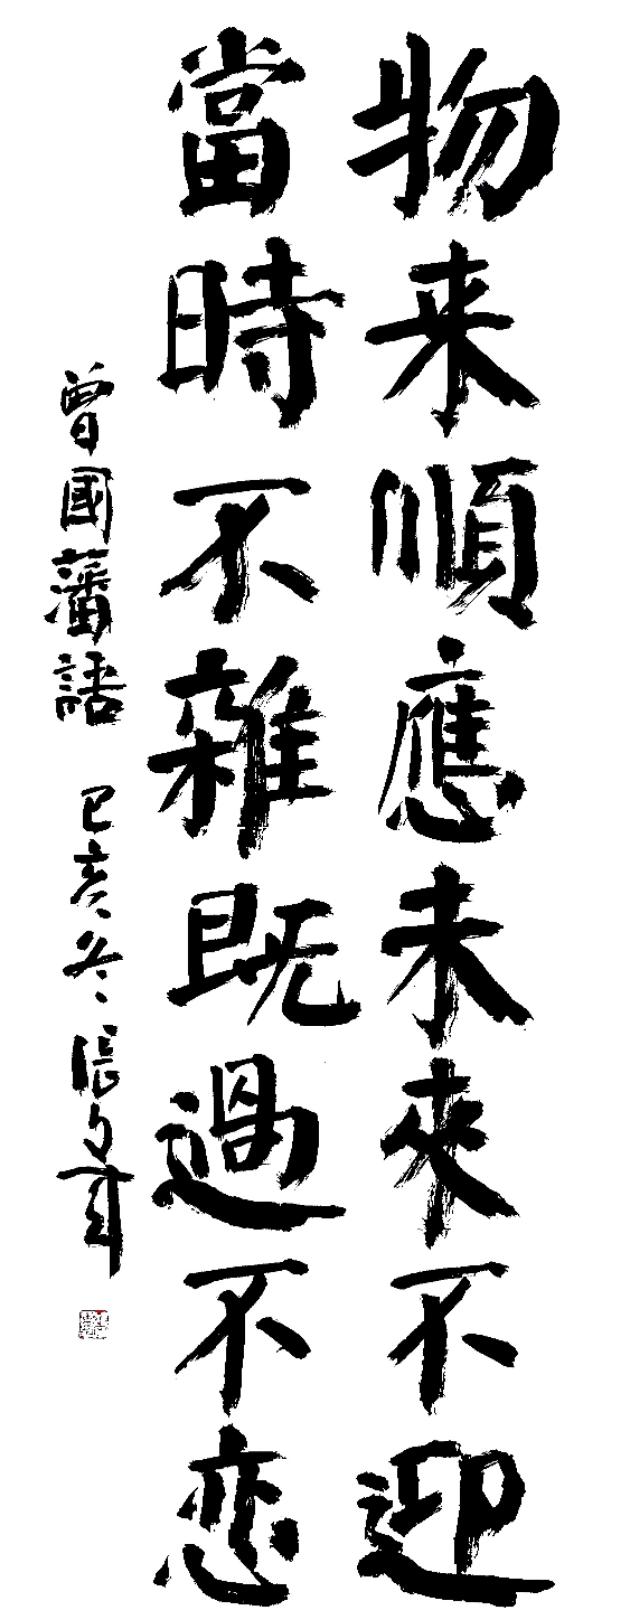 物来順應未來不迎
當時不雜既過不恋
曾國藩語 己亥冬 張